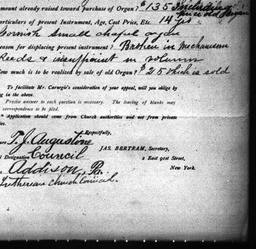 amount already raised toward purchase of Organ? $135 Including
price old Organ
Particulars of present Instrument, Age, Cost Price, Etc. 14 yrs
Cornish small chapel organ
Reason for displacing present instrument? Broken in mechanism
Reeds & insufficient in volume
How much is to be realized by sale of old Organ? $25 which is sold
To facilitate Mr. Carnegie's consideration of your appeal, will you oblige by
in the above.
Precise answer to each question is necessary. The leaving of blanks may
correspondence to be filed.
Application should come from Church authorities and not from private
Respectfully,
T. J. Augustine
JAS. BERTRAM, Secretary,
Designation Council
2 East 91st Street,
Addison, Pa.
New York.
Lutheran Church Council.